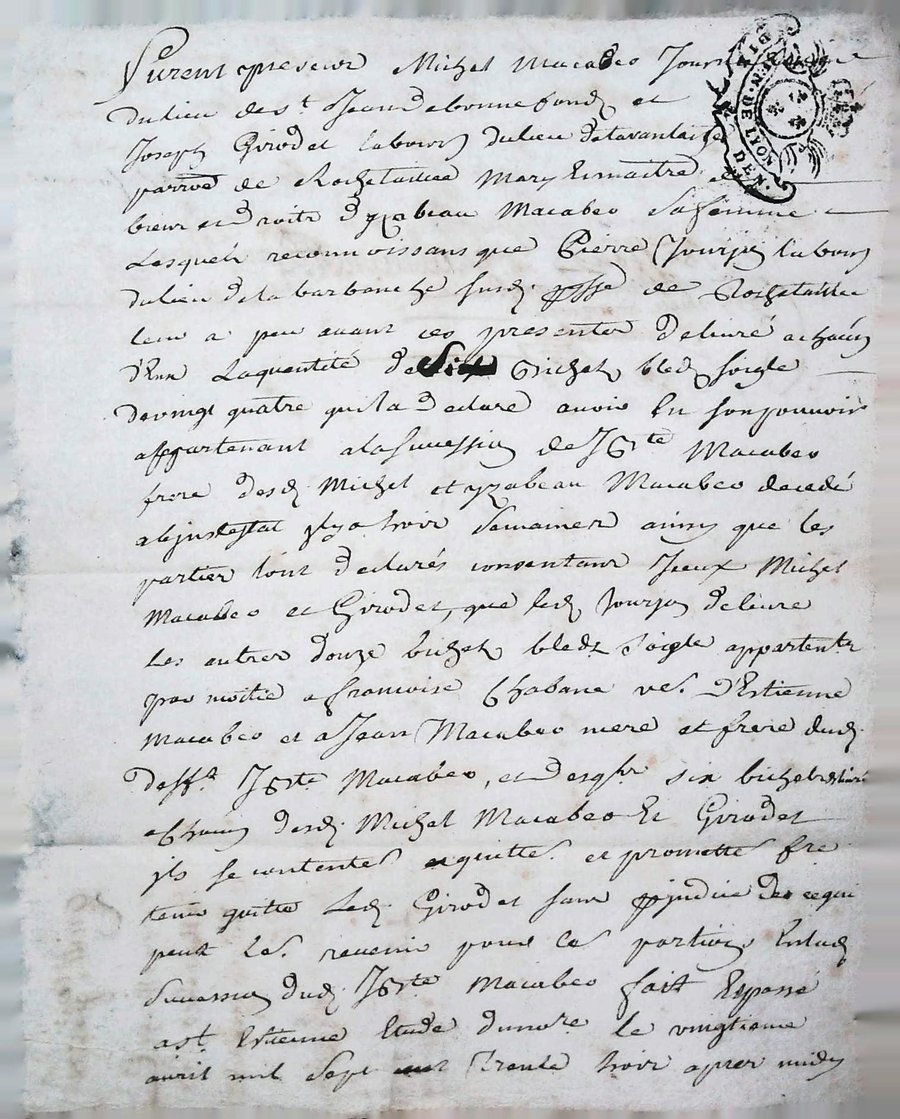 Furent presens Michel Macabeo
du lieu de st Jean de bonnefondz et
Joseph Girodet labour du lieu de tavantaize
parroe de Rochetaillee Mary et maitre
biens et droits d'yzabeau Macabeo sa femme
Lesquels reconnoissans que Pierre Jourjon labour
du lieu de la barbanche susd ppsse de Rochetaillee
leur a peu avant ces presentes delivré a chacun
d'Eux La quantité de Six Bichets bled soigle
de vingt quatre quil a declaré avoir En son pouvoir
appartenant a la succession de Jbte Macabeo
frere desd Michel et yzabeau Macabeo decedé
abjntestat jl y a trois semaines ainsy que les
parties l'ont declarés consentans Jceux Michel
Macabeo et Girodet, que led Jourjon delivre
Les autres douze bichets bledz soigle appartents
par moitié a francoise Chabane ve. D'Estienne
Macabeo et a Jean Macabeo mere et frere dud
deff. Jbte Macabeo, et desqls six bichets delivré
a Chacun desd Michel Macabeo Et Girodet
jls se contentes quittes et promettes fre
tenir quitte Led Girodet sans ppjudice de ce qui
peut Les revenir pour les parties En lad
succession dud Jbte Macabeo fait Et passé
a st Estienne Etude du nore le vingtieme
avril mil sept cent Trente trois apres midy
DIX DEN.
GEN. DE LYON